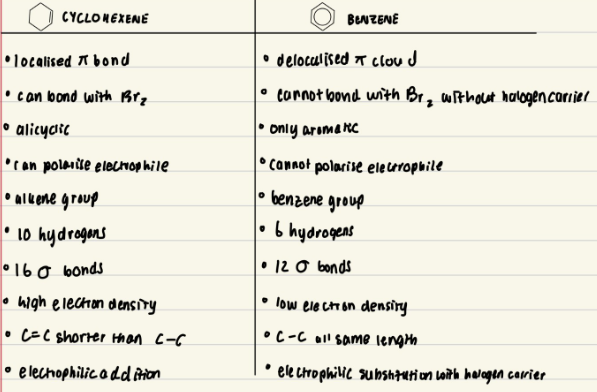 CYCLOHEXENE
BENZENE
• localised π bond
• delocalised π cloud
• can bond with Br₂
• cannot bond with Br₂ without halogen carrier
• alicyclic
• only aromatic
• can polarise electrophile
• cannot polarise electrophile
• alkene group
• benzene group
• 10 hydrogens
• 6 hydrogens
• 16 σ bonds
• 12 σ bonds
• high electron density
• low electron density
• C=C shorter than C-C
• C-C all same length
• electrophilic addition
• electrophilic substitution with halogen carrier